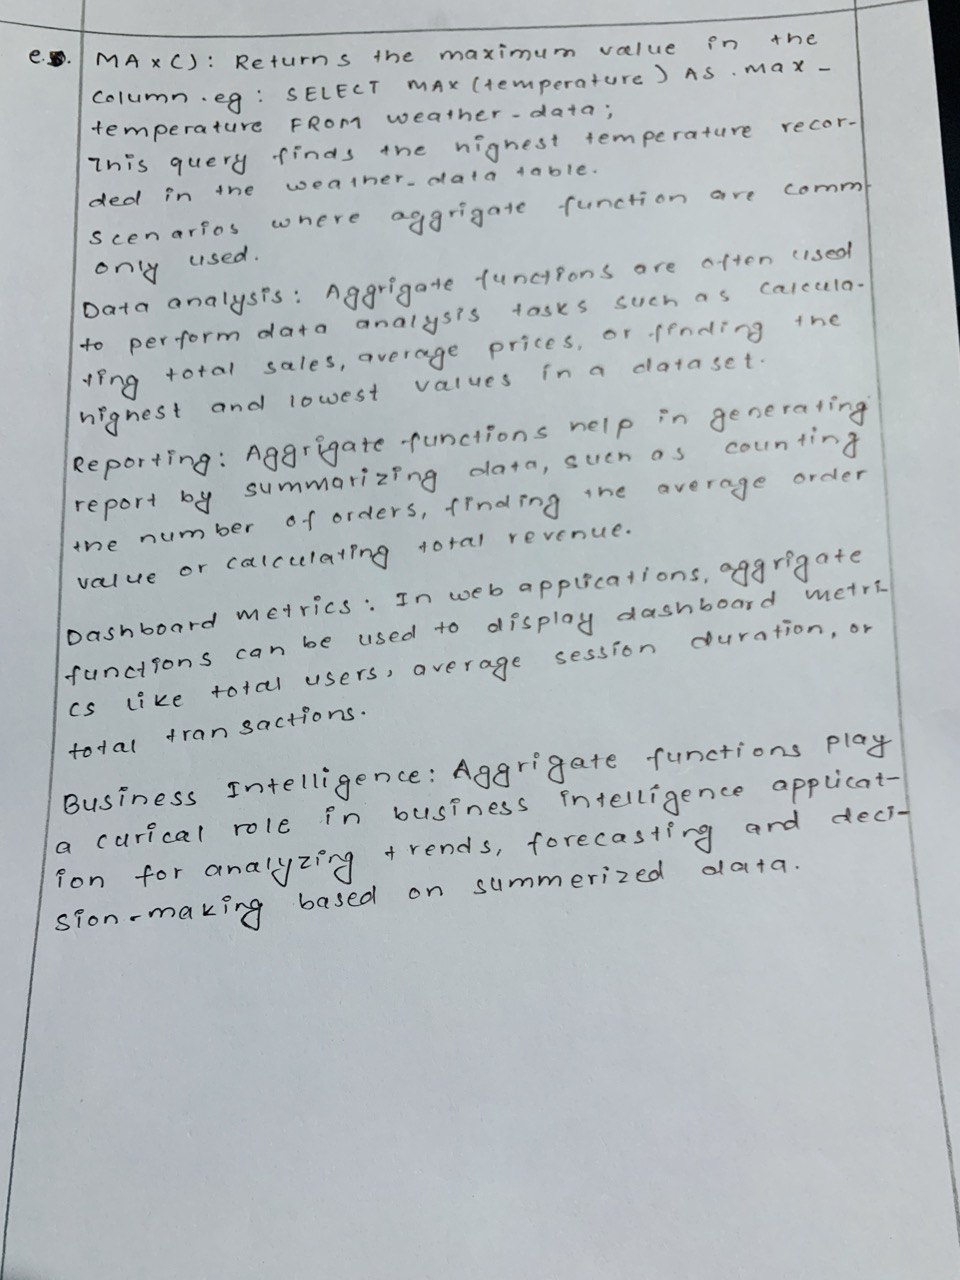 e. MAX(): Returns the maximum value in the
column. eg: SELECT MAX (temperature) AS. max-
temperature FROM weather-data;
This query finds the highest temperature recor-
ded in the weather-data table.
Scenarios where aggrigate function are comm
only used.
Data analysis: Aggrigate functions are often used
to perform data analysis tasks such as calcula-
ting total sales, average prices, or finding the
highest and lowest values in a dataset.
Reporting: Aggrigate functions help in generating
report by summarizing data, such as counting
the number of orders, finding the average order
value or calculating total revenue.
Dashboard metrics: In web applications, aggrigate
functions can be used to display dashboard metri
cs like total users, average session duration, or
total transactions.
Business Intelligence: Aggrigate functions play
a curical role in business intelligence applicat-
ion for analyzing trends, forecasting and deci-
sion-making based on summerized data.